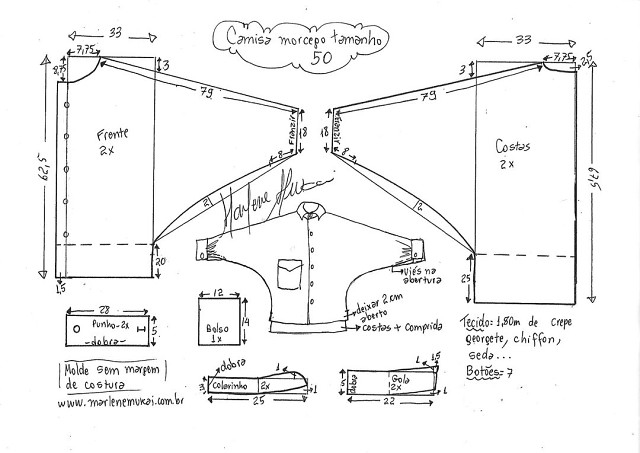 Camisa morcego tamanho
50
33
7,75
8,75
3
79
Frente
2x
62,5
Franzir
18
8
2
20
1,5
33
7,75
2,5
3
79
Franzir
18
8
2
Costas
2x
67,5
25
Marlene Mukai
viés na
abertura
deixar 2 cm
aberto
costas + comprida
28
Punho-2x
-dobra-
5
12
Bolso
1x
14
Tecido: 1,80m de crepe
georgete, chiffon,
seda...
Botões: 7
Molde sem margem
de costura
www.marlenemukai.com.br
dobra
1
3
colarinho
2x
1
25
1
1,5
5
dobra
Gola
2x
1
22